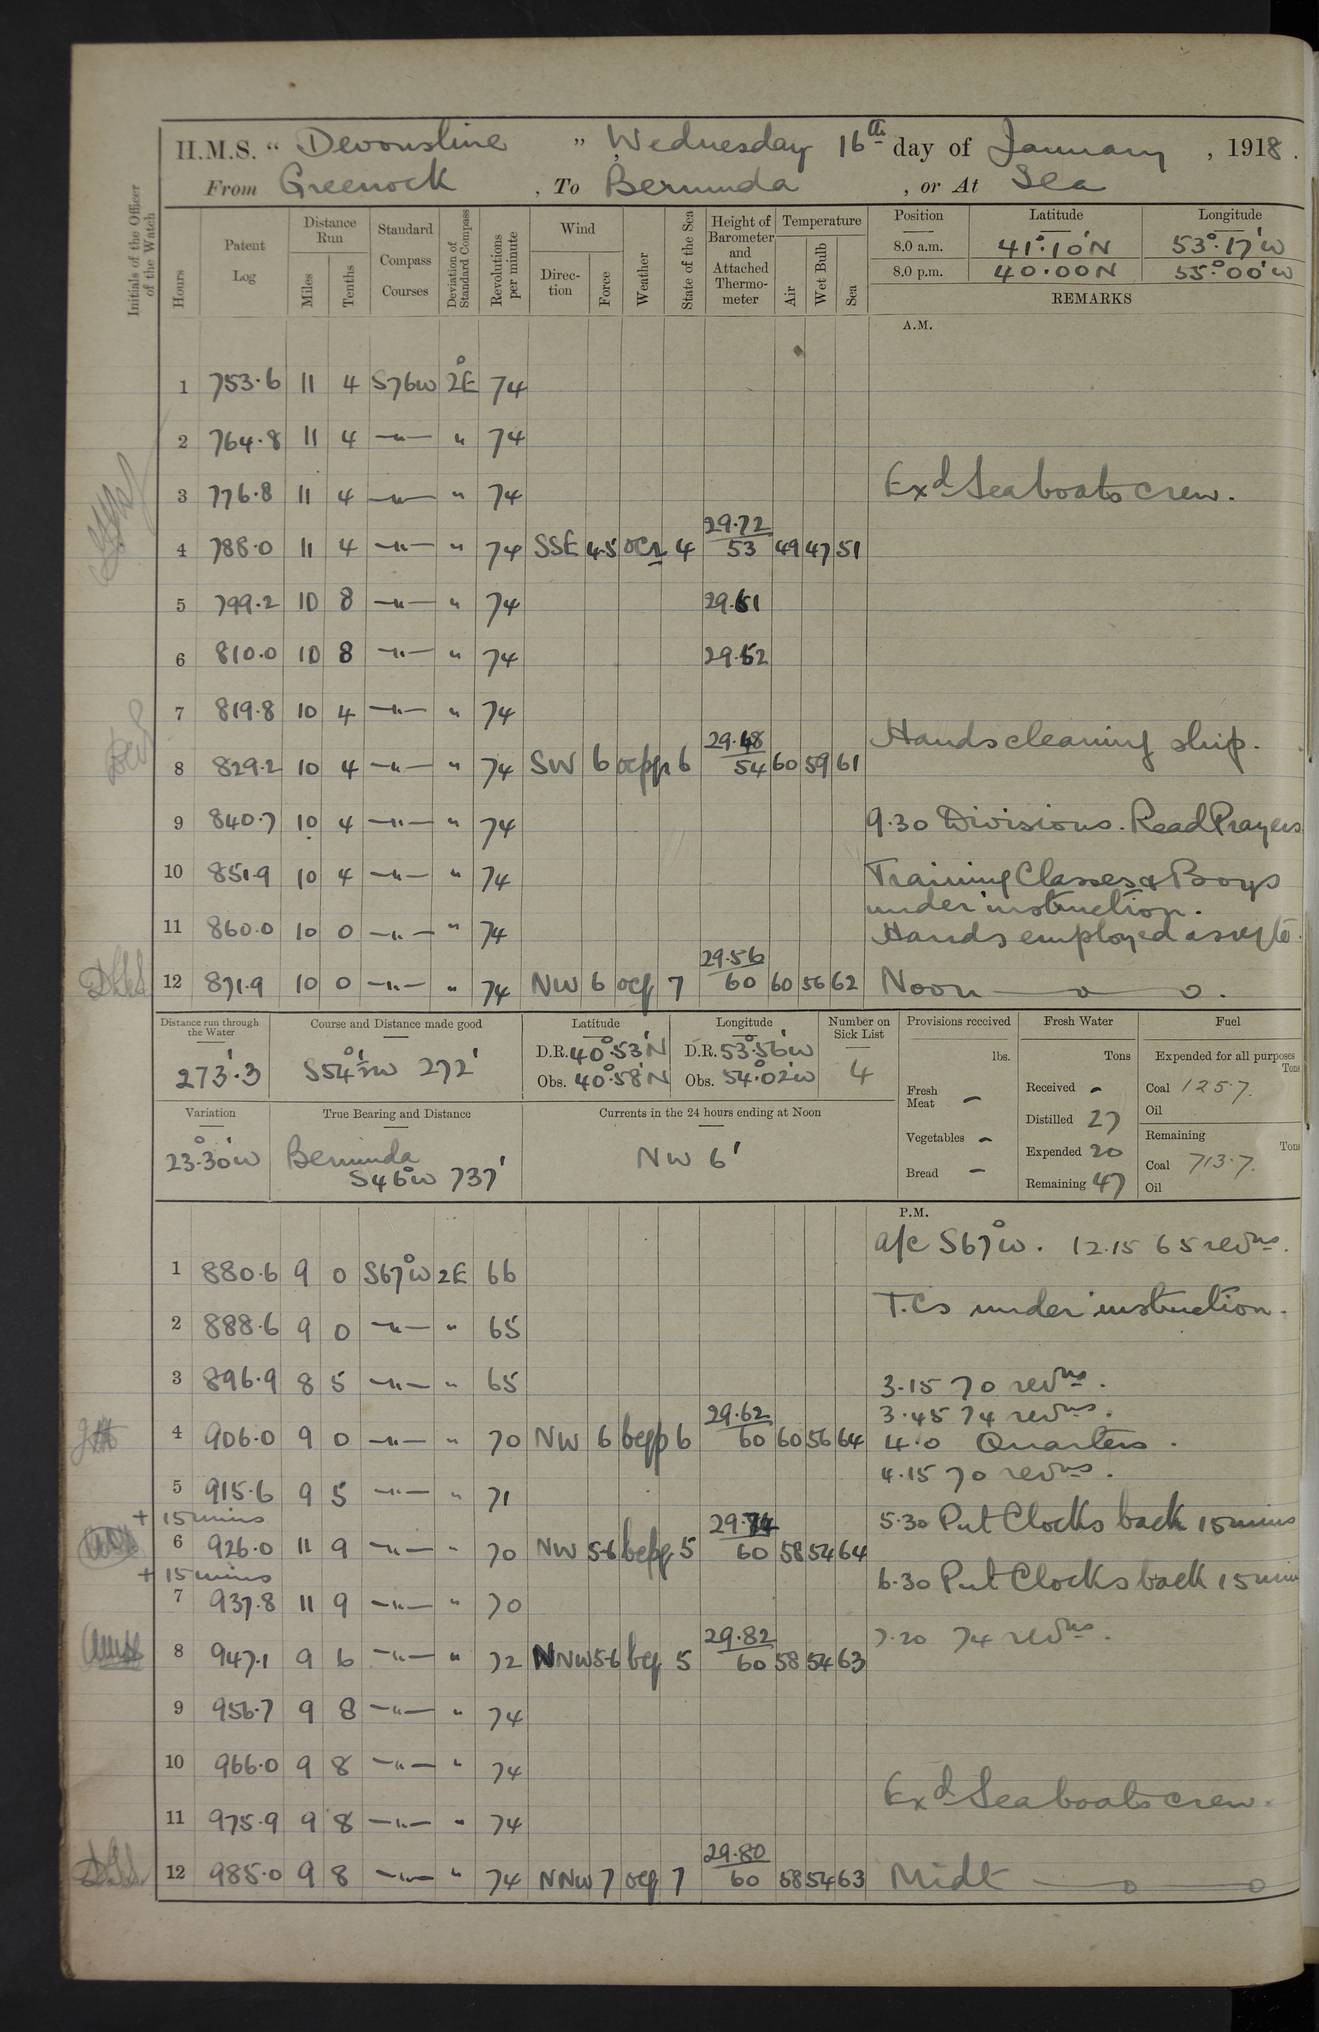 H.M.S. " Devonshire " Wednesday 16th day of January, 1918.
From Greenock, To Bermuda, or At Sea
Initials of the Officer of the Watch
Hours
Patent Log
Distance Run
Miles
Tenths
Standard Compass Courses
Deviation of Standard Compass
Revolutions per minute
Wind
Direction
Force
Weather
State of the Sea
Height of Barometer and Attached Thermometer
Temperature
Air
Wet Bulb
Sea
Position Latitude Longitude
8.0 a.m. 41°.10'N 53°.17'W
8.0 p.m. 40.00N 55°.00'W
REMARKS
A.M.
1 753.6 11 4 S76W 2°E 74
2 764.8 11 4 —"— " 74
3 776.8 11 4 —"— " 74 Exd Seaboats crew.
4 788.0 11 4 —"— " 74 SSE 4.5 ocr 4 29.72 53 49 47 51
5 799.2 10 8 —"— " 74 29.61
6 810.0 10 8 —"— " 74 29.52
7 819.8 10 4 —"— " 74
Hands cleaning ship.
8 829.2 10 4 —"— " 74 SW 6 6 29.48 54 60 59 61
9 840.7 10 4 —"— " 74 9.30 Divisions. Read Prayers
10 851.9 10 4 —"— " 74 Training Classes & Boys
under instruction.
11 860.0 10 0 —"— " 74 Hands employed as reqte.
12 871.9 10 0 —"— " 74 NW 6 ocq 7 29.56 60 60 56 62 Noon
Distance run through the Water
273'.3
Course and Distance made good
S54°½W 272'
Latitude
D.R. 40°.53'N
Obs. 40°.58'N
Longitude
D.R. 53°.56'W
Obs. 54°.02'W
Number on Sick List
4
Provisions received
lbs.
Fresh Meat -
Vegetables -
Bread -
Fresh Water
Tons
Received -
Distilled 27
Expended 20
Remaining 47
Fuel
Expended for all purposes
Tons
Coal 125.7.
Oil
Remaining
Tons
Coal 713.7.
Oil
Variation
23°.30'W
True Bearing and Distance
Bermuda
S46°W 737'
Currents in the 24 hours ending at Noon
NW 6'
P.M.
a/c S67°W. 12.15 65 revns.
1 880.6 9 0 S67°W 2E 66
T.Cs under instruction.
2 888.6 9 0 —"— " 65
3 896.9 8 5 —"— " 65 3.15 70 revns.
3.45 74 revns.
4 906.0 9 0 —"— " 70 NW 6 6 29.62 60 60 56 64 4.0 Quarters.
4.15 70 revns.
5 915.6 9 5 —"— " 71
+ 15 mins 5.30 Put Clocks back 15 mins
6 926.0 11 9 —"— " 70 NW 5-6 5 29.74 60 58 54 64
+ 15 mins 6.30 Put Clocks back 15 mins
7 937.8 11 9 —"— " 70
7.20 74 revns.
8 947.1 9 6 —"— " 72 NNW 5-6 bcq 5 29.82 60 58 54 63
9 956.7 9 8 —"— " 74
10 966.0 9 8 —"— " 74
Exd Seaboats crew.
11 975.9 9 8 —"— " 74
12 985.0 9 8 —"— " 74 NNW 7 ocq 7 29.80 60 58 54 63 Midt